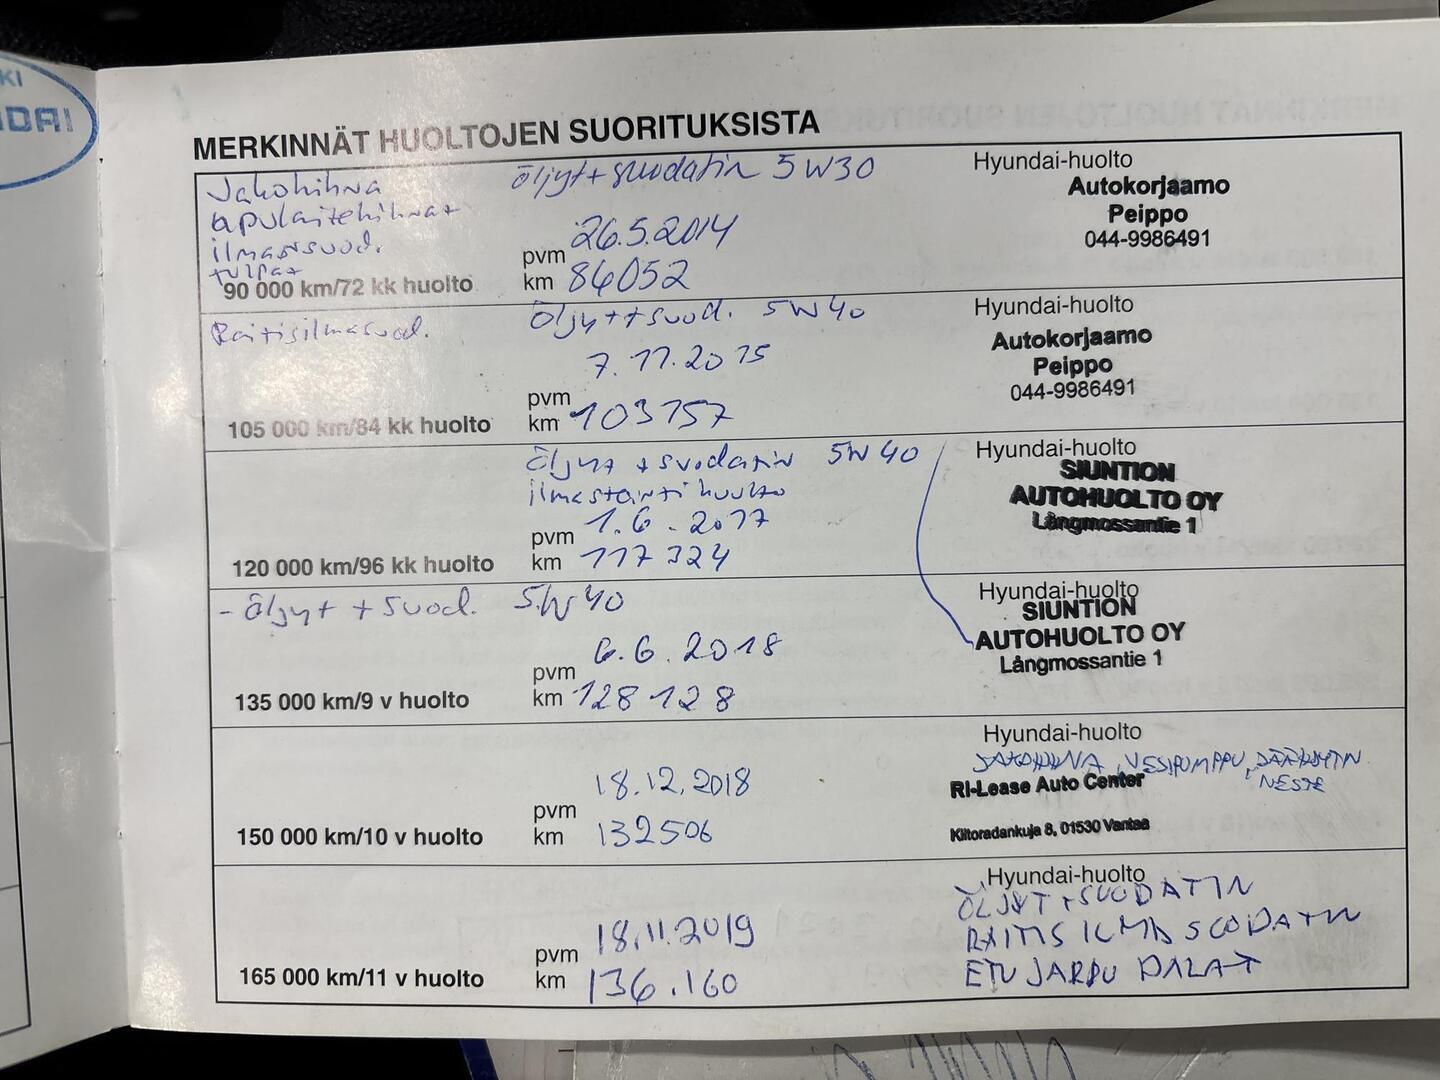 KI
DAI
MERKINNÄT HUOLTOJEN SUORITUKSISTA
Jakohihna
apulaitehihnat
ilmansuod.
tulpat
90 000 km/72 kk huolto
öljyt + suodatin 5W30
pvm 26.5.2014
km 86052
Hyundai-huolto
Autokorjaamo
Peippo
044-9986491
Raitisilmasuod.
105 000 km/84 kk huolto
Öljyt + suod. 5W40
pvm 7.11.2015
km 103157
Hyundai-huolto
Autokorjaamo
Peippo
044-9986491
120 000 km/96 kk huolto
Öljyt + suodatin 5W40
ilmastointihuolto
pvm 1.6.2017
km 117324
Hyundai-huolto
SIUNTION
AUTOHUOLTO OY
Långmossantie 1
- Öljyt + suod. 5W40
135 000 km/9 v huolto
pvm 6.6.2018
km 128128
Hyundai-huolto
SIUNTION
AUTOHUOLTO OY
Långmossantie 1
150 000 km/10 v huolto
pvm 18.12.2018
km 132506
Hyundai-huolto
JAKOHIHNA, VESIPUMPPU, JÄÄHDYTIN
NESTE
RI-Lease Auto Center
Kiitoradankuja 8, 01530 Vantaa
165 000 km/11 v huolto
pvm 18.11.2019
km 136.160
Hyundai-huolto
ÖLJYT + SUODATIN
RAITIS ILMA SUODATIN
ETU JARRU PALAT